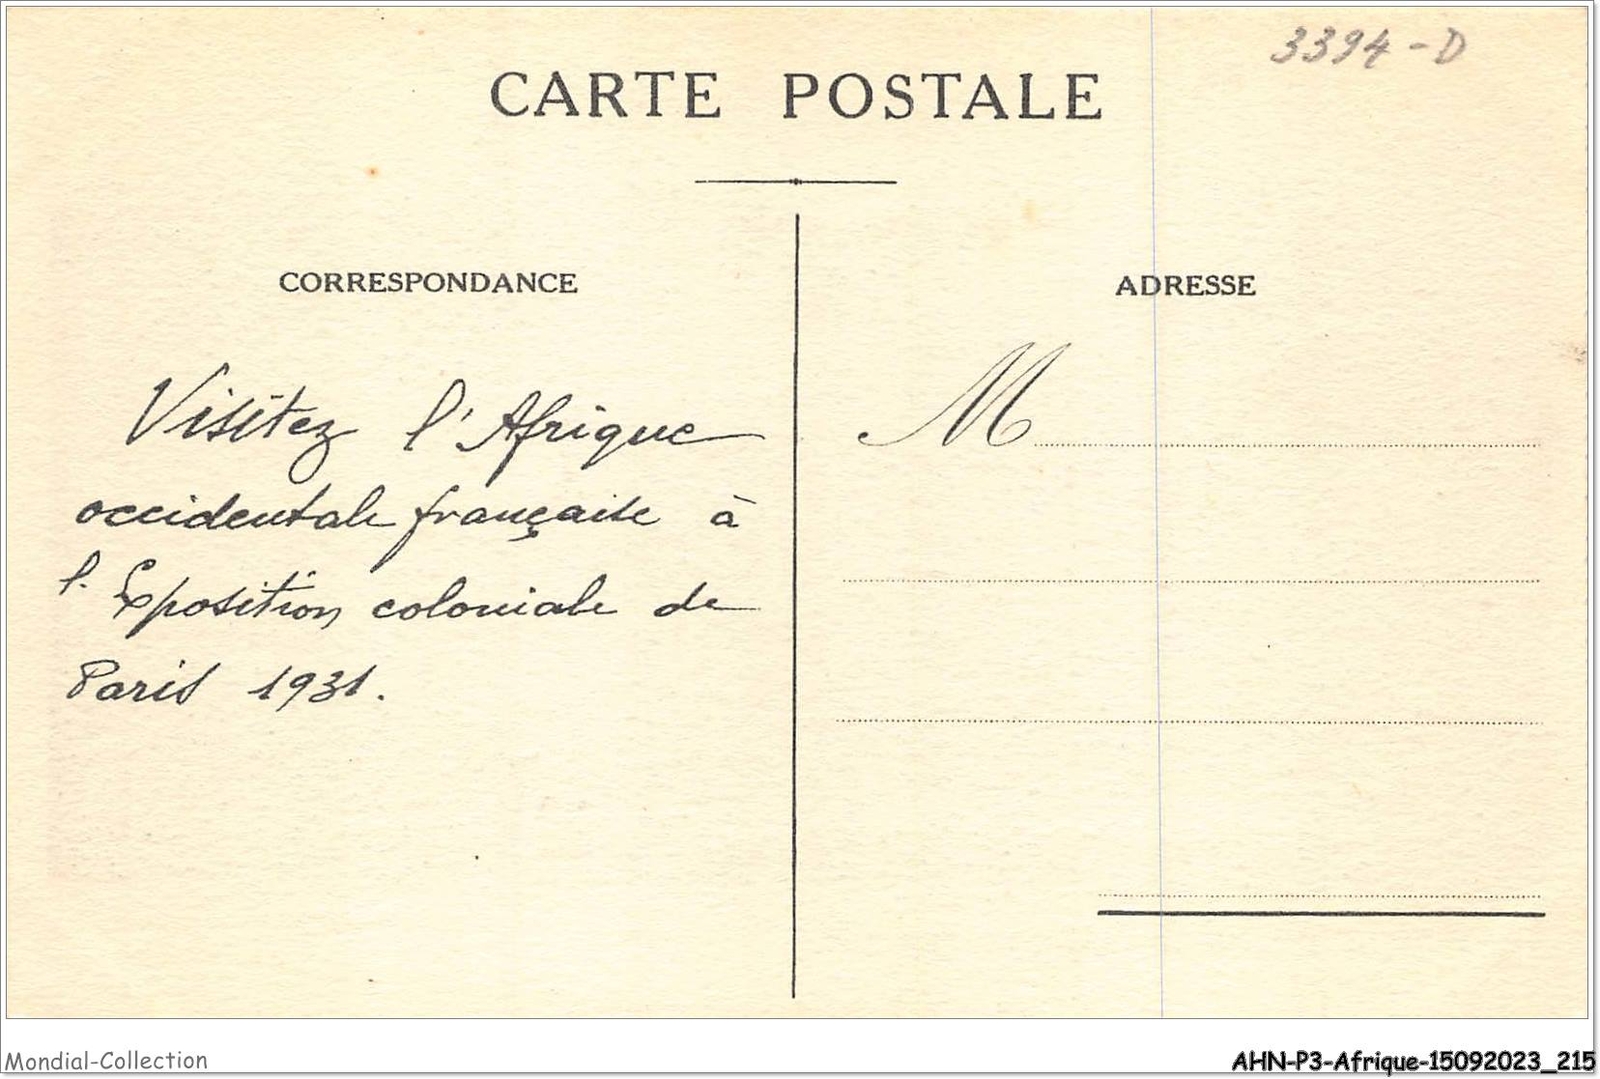 3394-D
CARTE POSTALE
CORRESPONDANCE
Visitez l'Afrique
occidentale française à
l'Exposition coloniale de
Paris 1931.
ADRESSE
M
Mondial-Collection
AHN-P3-Afrique-15092023_215